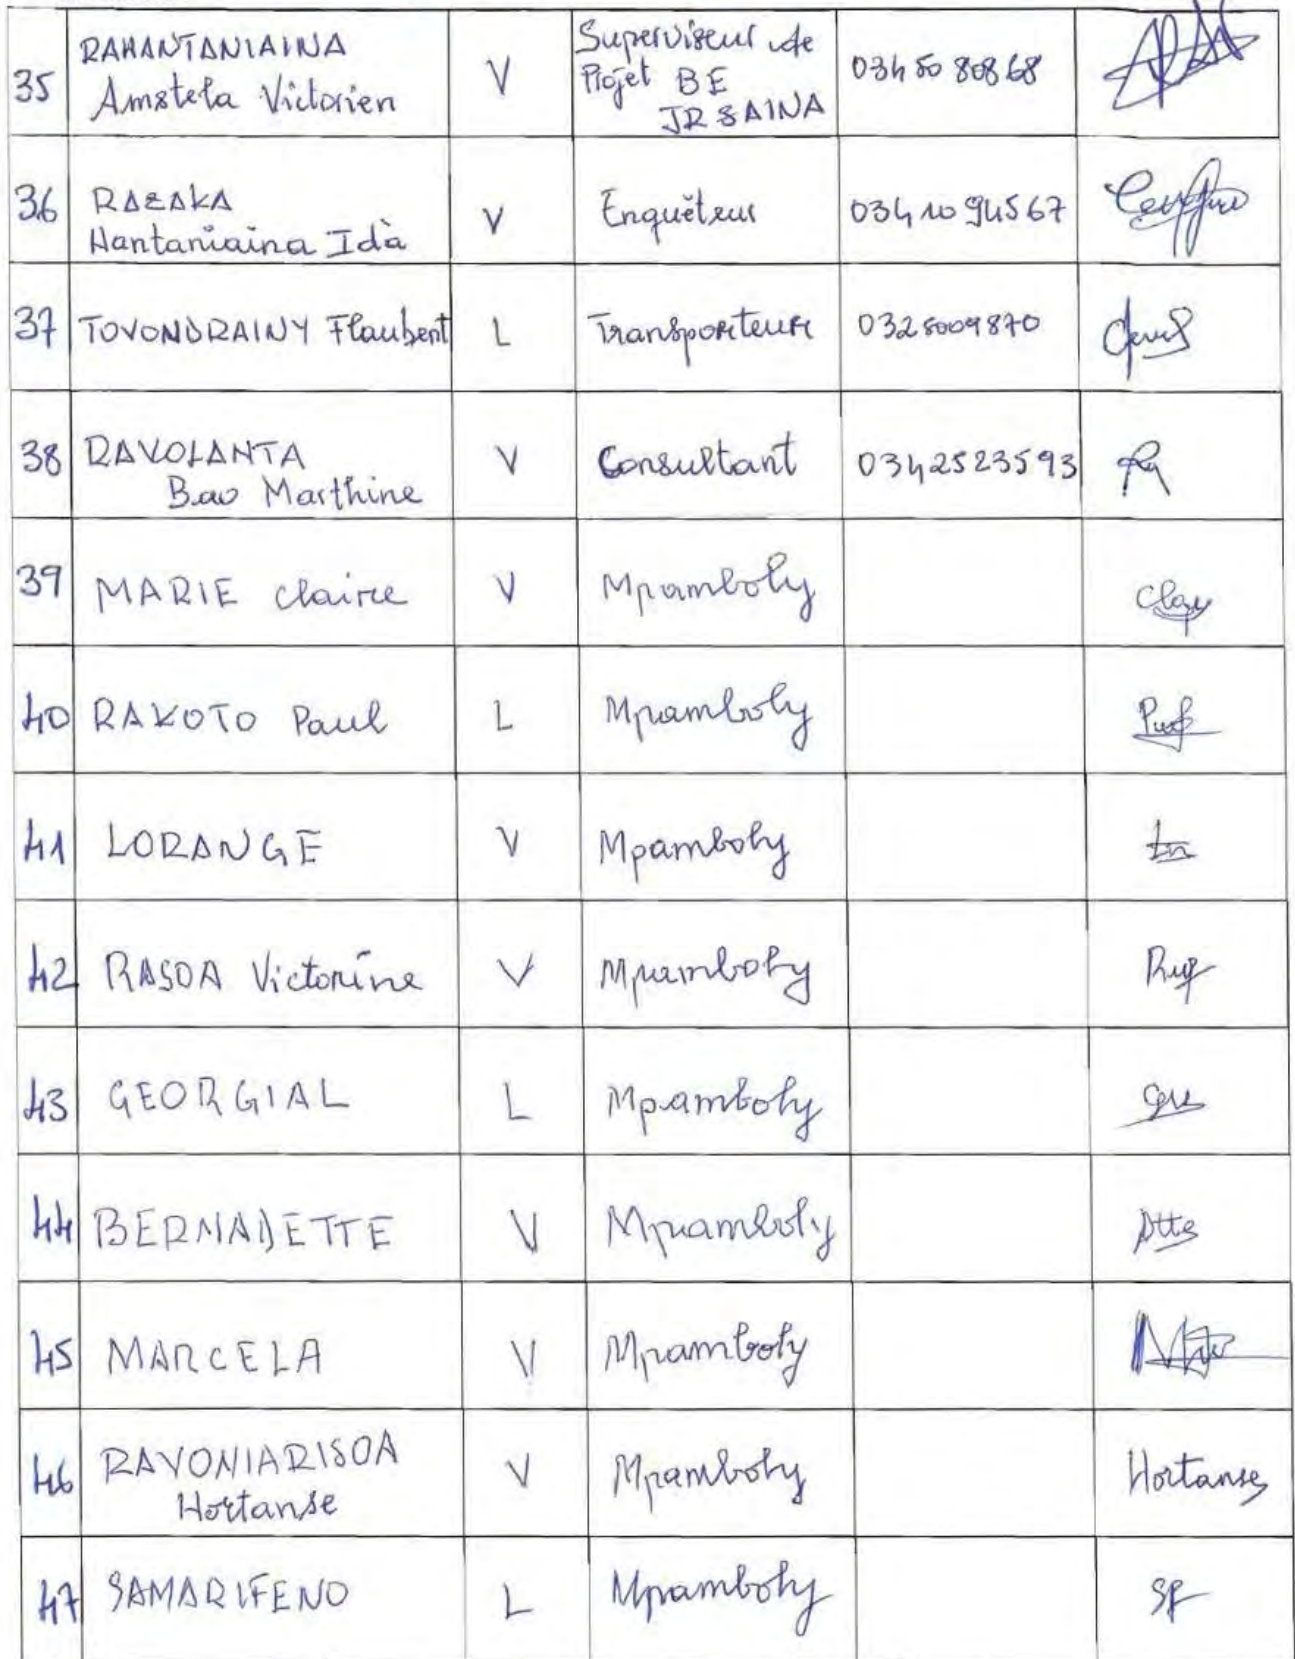 35 RAHANTANIAINA Amstela Victorien V Superviseur de Projet BE JRSAINA 034 50 808 68
36 RAZAKA Hantaniaina Ida V Enquêteur 034 10 945 67
37 TOVONDRAINY Flaubert L Transporteur 032 5009870
38 RAVOLANTA Bao Marthine V Consultant 0342523593
39 MARIE Claire V Mpamboly
40 RAKOTO Paul L Mpamboly
41 LORANGE V Mpamboly
42 RASOA Victorine V Mpamboly
43 GEORGIAL L Mpamboly
44 BERNADETTE V Mpamboly
45 MARCELA V Mpamboly
46 RAVONIARISOA Hortanse V Mpamboly Hortanse
47 SAMARIFENO L Mpamboly